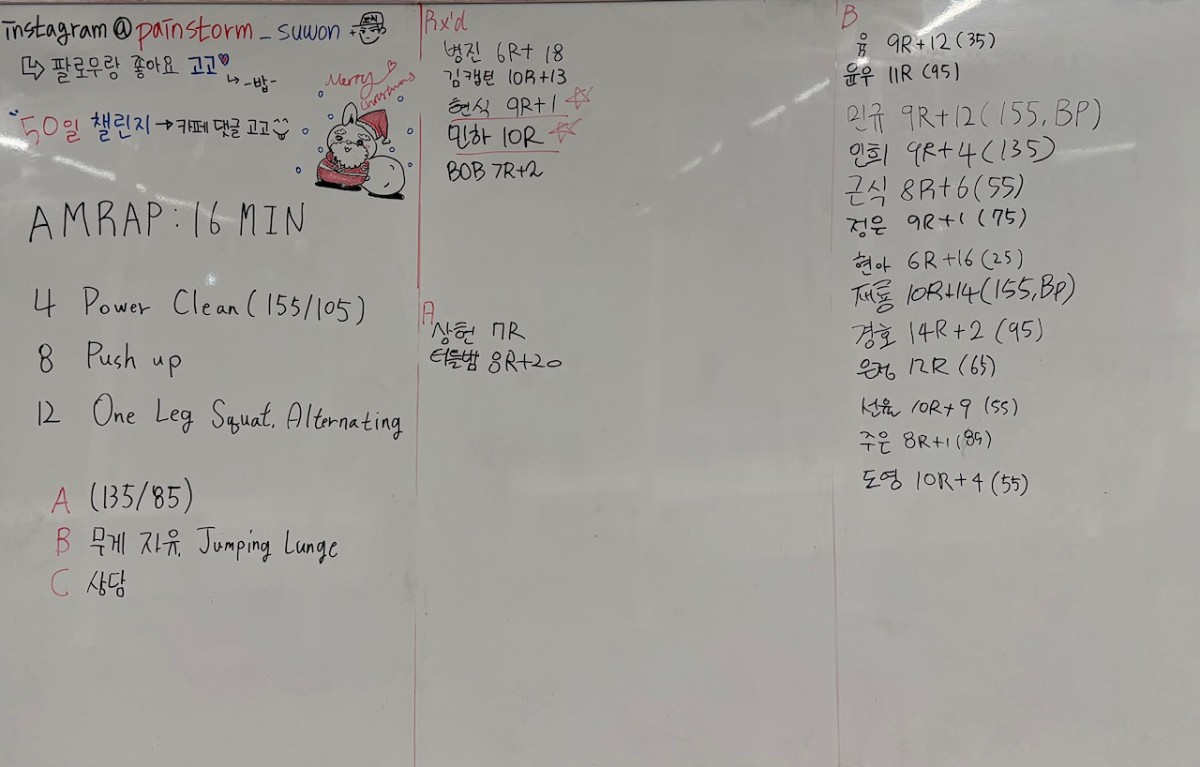 instagram @ painstorm_suwon
팔로우랑 좋아요 고고
-밥-
50일 챌린지 → 카페 댓글 고고
Merry Christmas
AMRAP : 16 MIN
4 Power Clean (155/105)
8 Push up
12 One Leg Squat, Alternating
A (135/85)
B 무게 자유, Jumping Lunge
C 상담
Rx'd
병진 6R+18
김캡틴 10R+13
현식 9R+1
민하 10R
BOB 7R+2
A
상헌 7R
터틀밥 8R+20
B
윰 9R+12 (35)
윤우 11R (95)
민규 9R+12 (155, BP)
인희 9R+4 (135)
근식 8R+6 (55)
정은 9R+1 (75)
현아 6R+16 (25)
재룡 10R+14 (155, BP)
경호 14R+2 (95)
은정 12R (65)
선율 10R+9 (55)
주은 8R+1
도영 10R+4 (55)